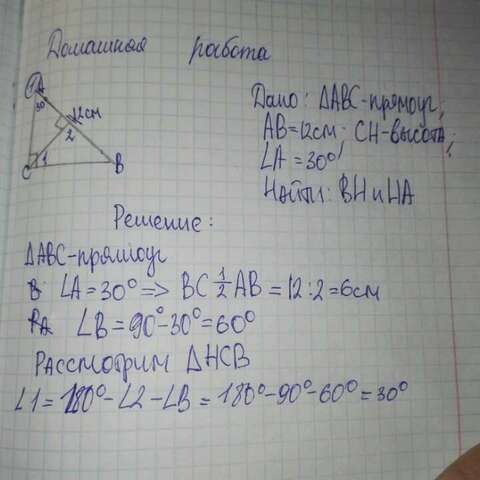 Домашная работа
A
30
12см
2
C
1
B
Дано: ΔABC-прямоуг;
AB=12см CH-высота;
∠A=30°;
Найти: BH и HA
Решение:
ΔABC-прямоуг
∠A=30°=> BC 1/2 AB = 12:2=6см
∠B=90°-30°=60°
Рассмотрим ΔHCB
∠1=180°-∠2-∠B=180°-90°-60°=30°